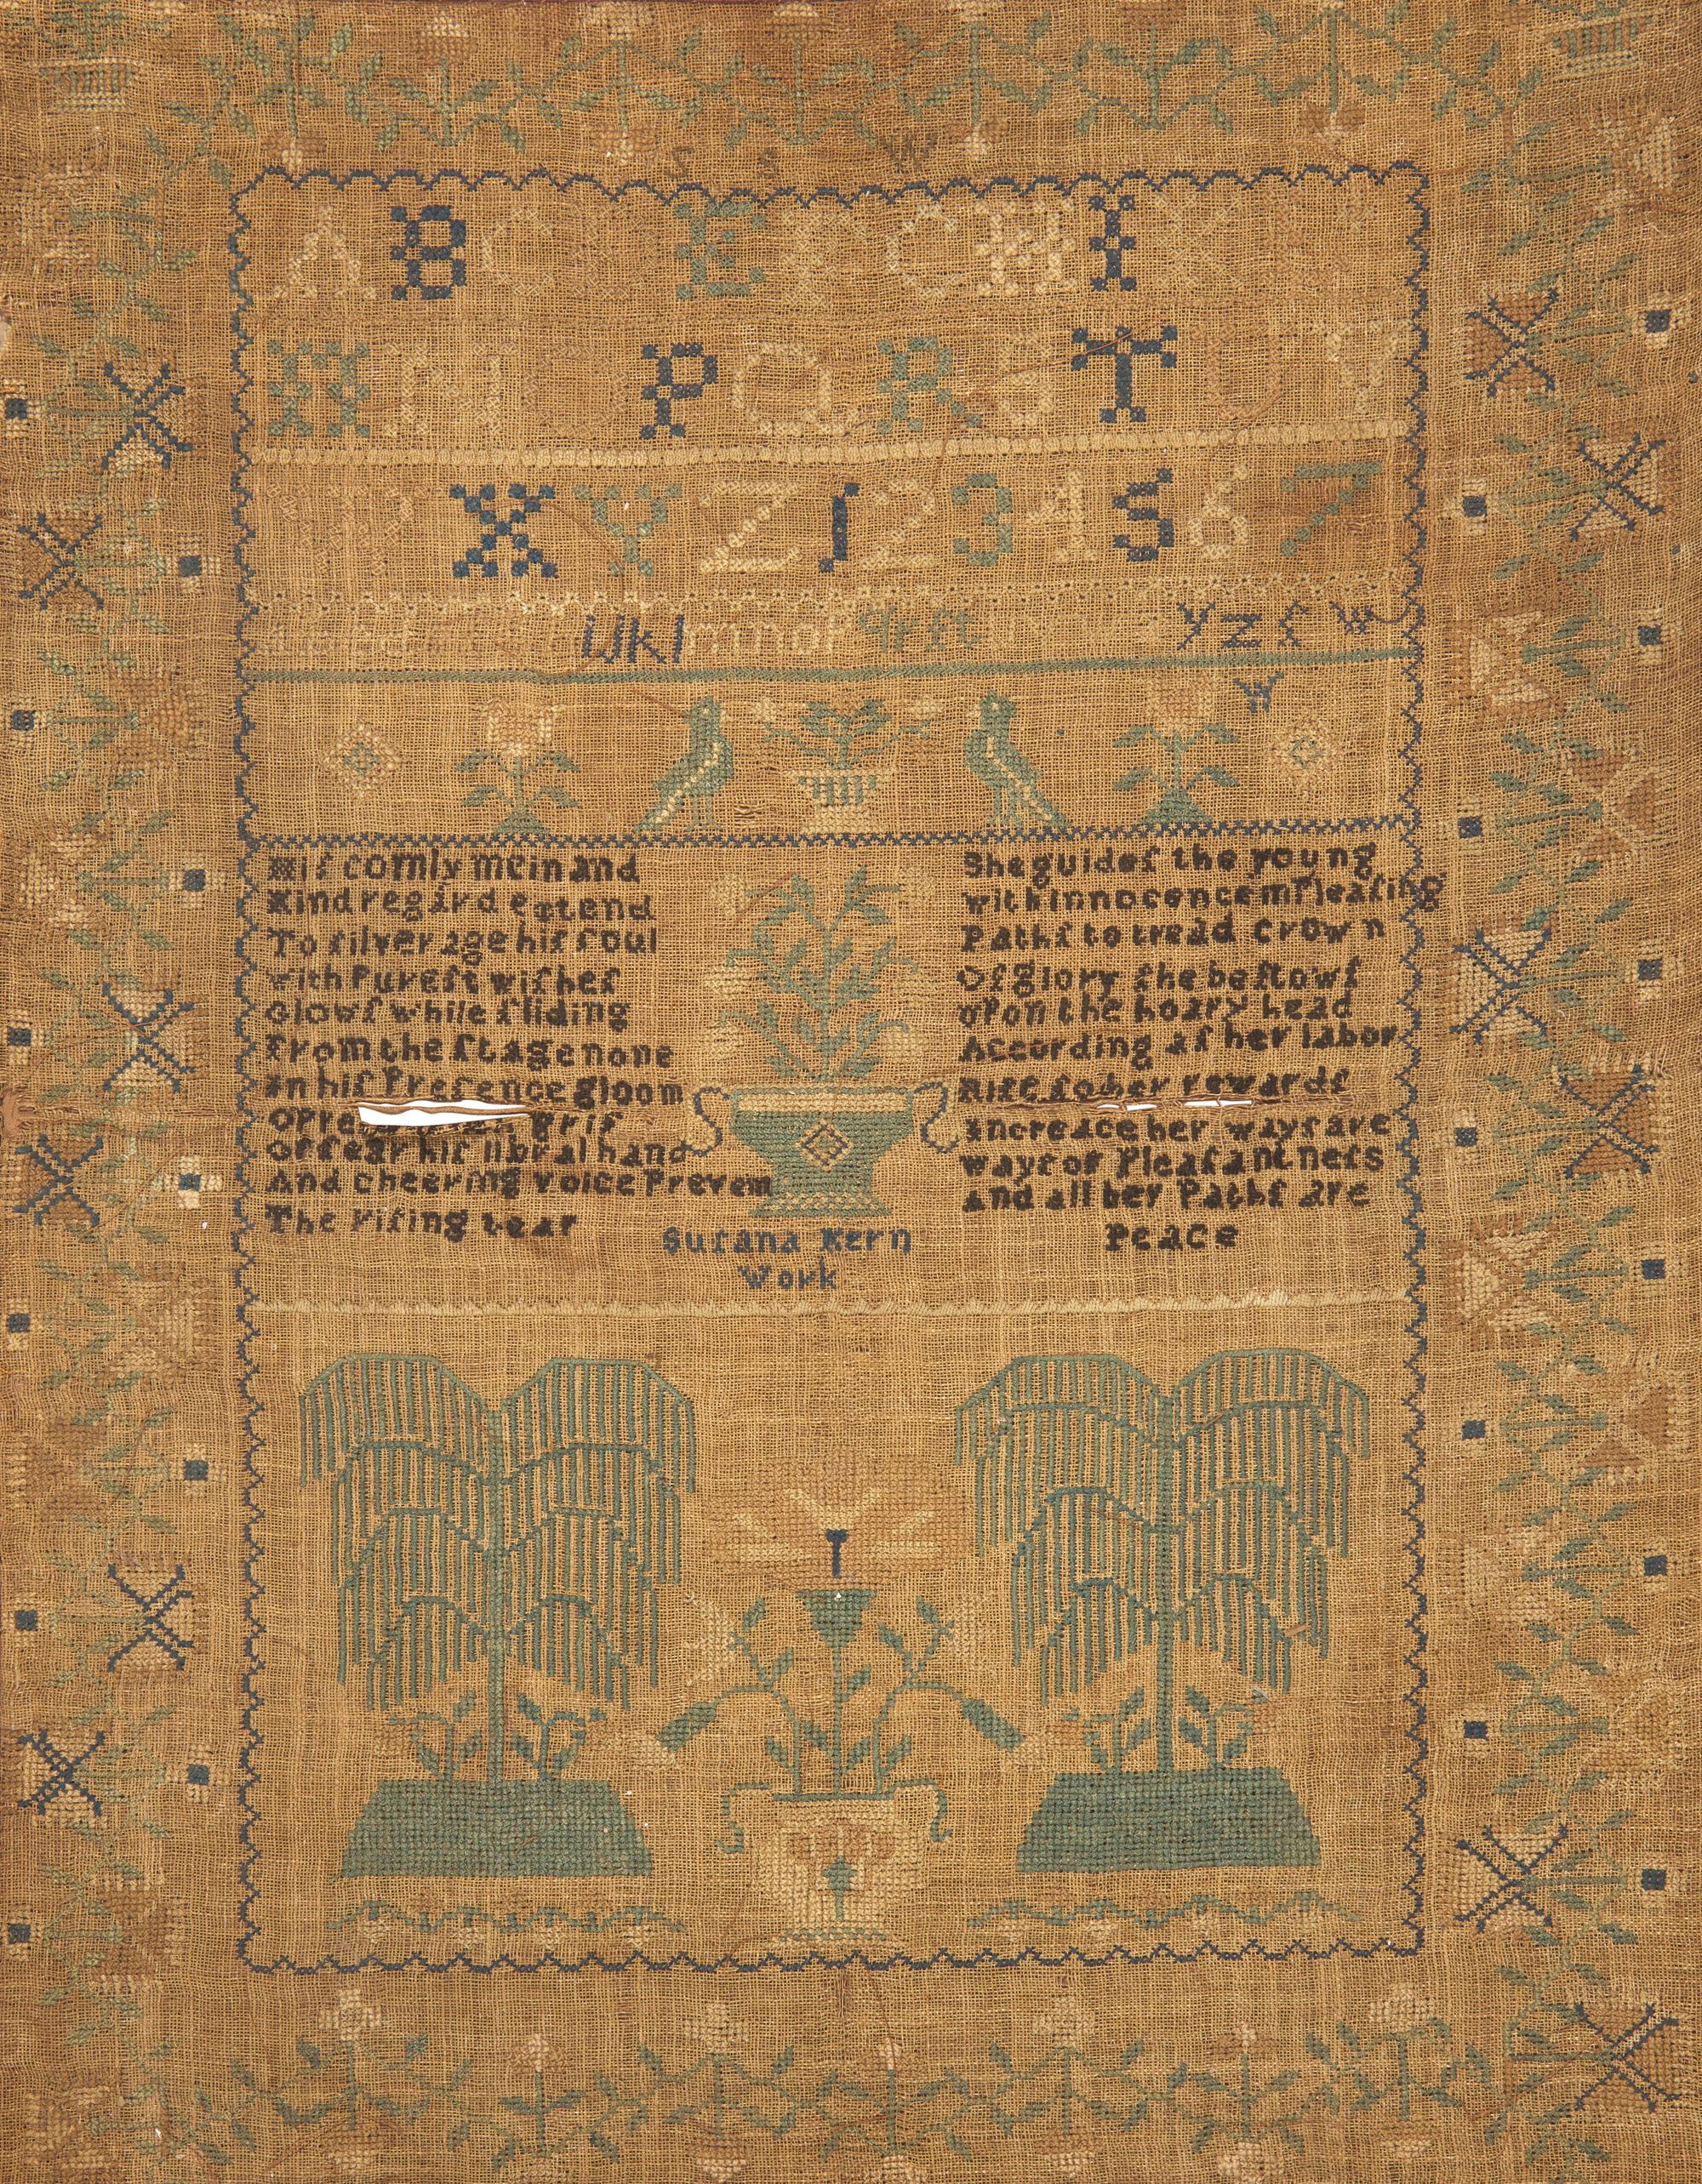 S S W
A B C D E F G H I K L
M N O P Q R S T U V
W X Y Z 1 2 3 4 5 6 7
a b c d ijklmnop qrſt yzſ w
W
Hiſ comly mein and
Kind regard extend
To ſilver age hiſ ſoul
with Pureſt wiſheſ
Glowſ while ſliding
From the ſtage none
in hiſ Preſence gloom
opre grif
offear hiſ libral hand
And cheering voice Prevem
The riſing tear
She guideſ the young
with innocence m Pleaſing
Pathſ to tread crown
Of glory ſhe beſtowſ
opon the hoary head
According aſ her labor
Riſe ſo her rewardſ
increace her wayſ are
wayſ of Pleaſantneſs
and all her Pathſ are
Peace
Suſana Kern
Work